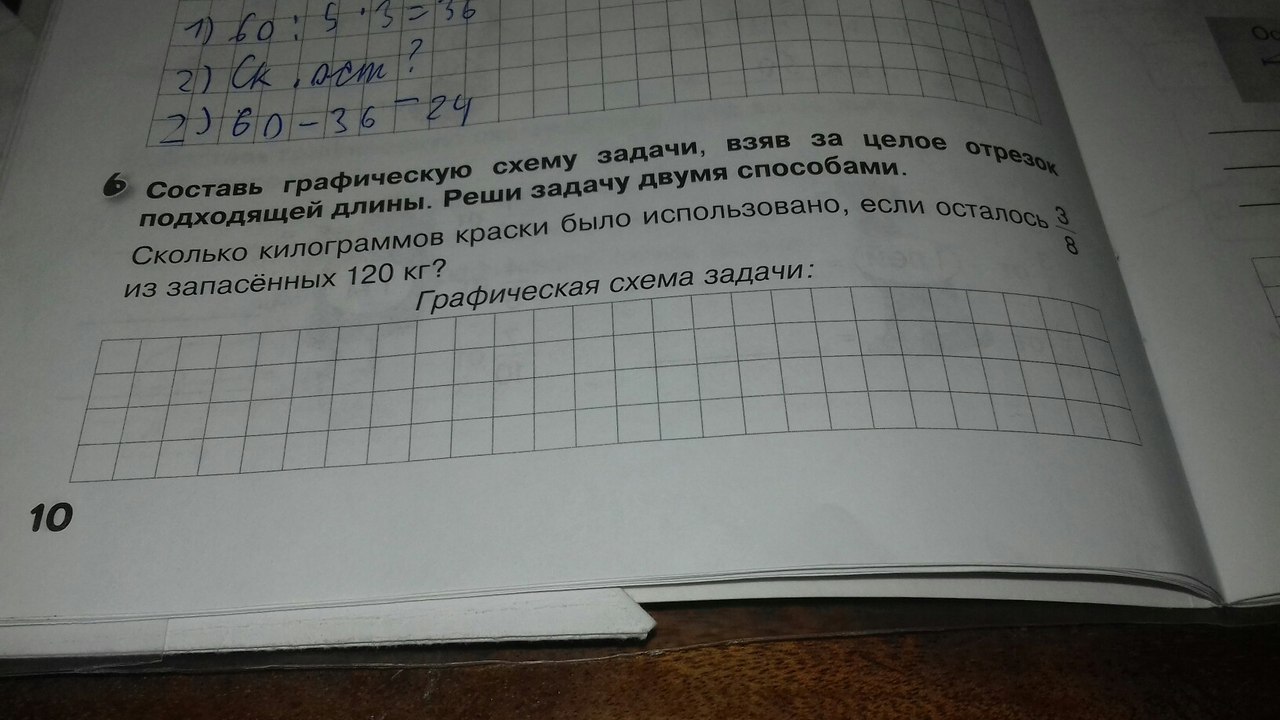 1) 60 : 5 · 3 = 36
2) Ск. ост?
2) 60 - 36 = 24
6 Составь графическую схему задачи, взяв за целое отрезок
подходящей длины. Реши задачу двумя способами.
Сколько килограммов краски было использовано, если осталось 3/8
из запасённых 120 кг?
Графическая схема задачи:
10